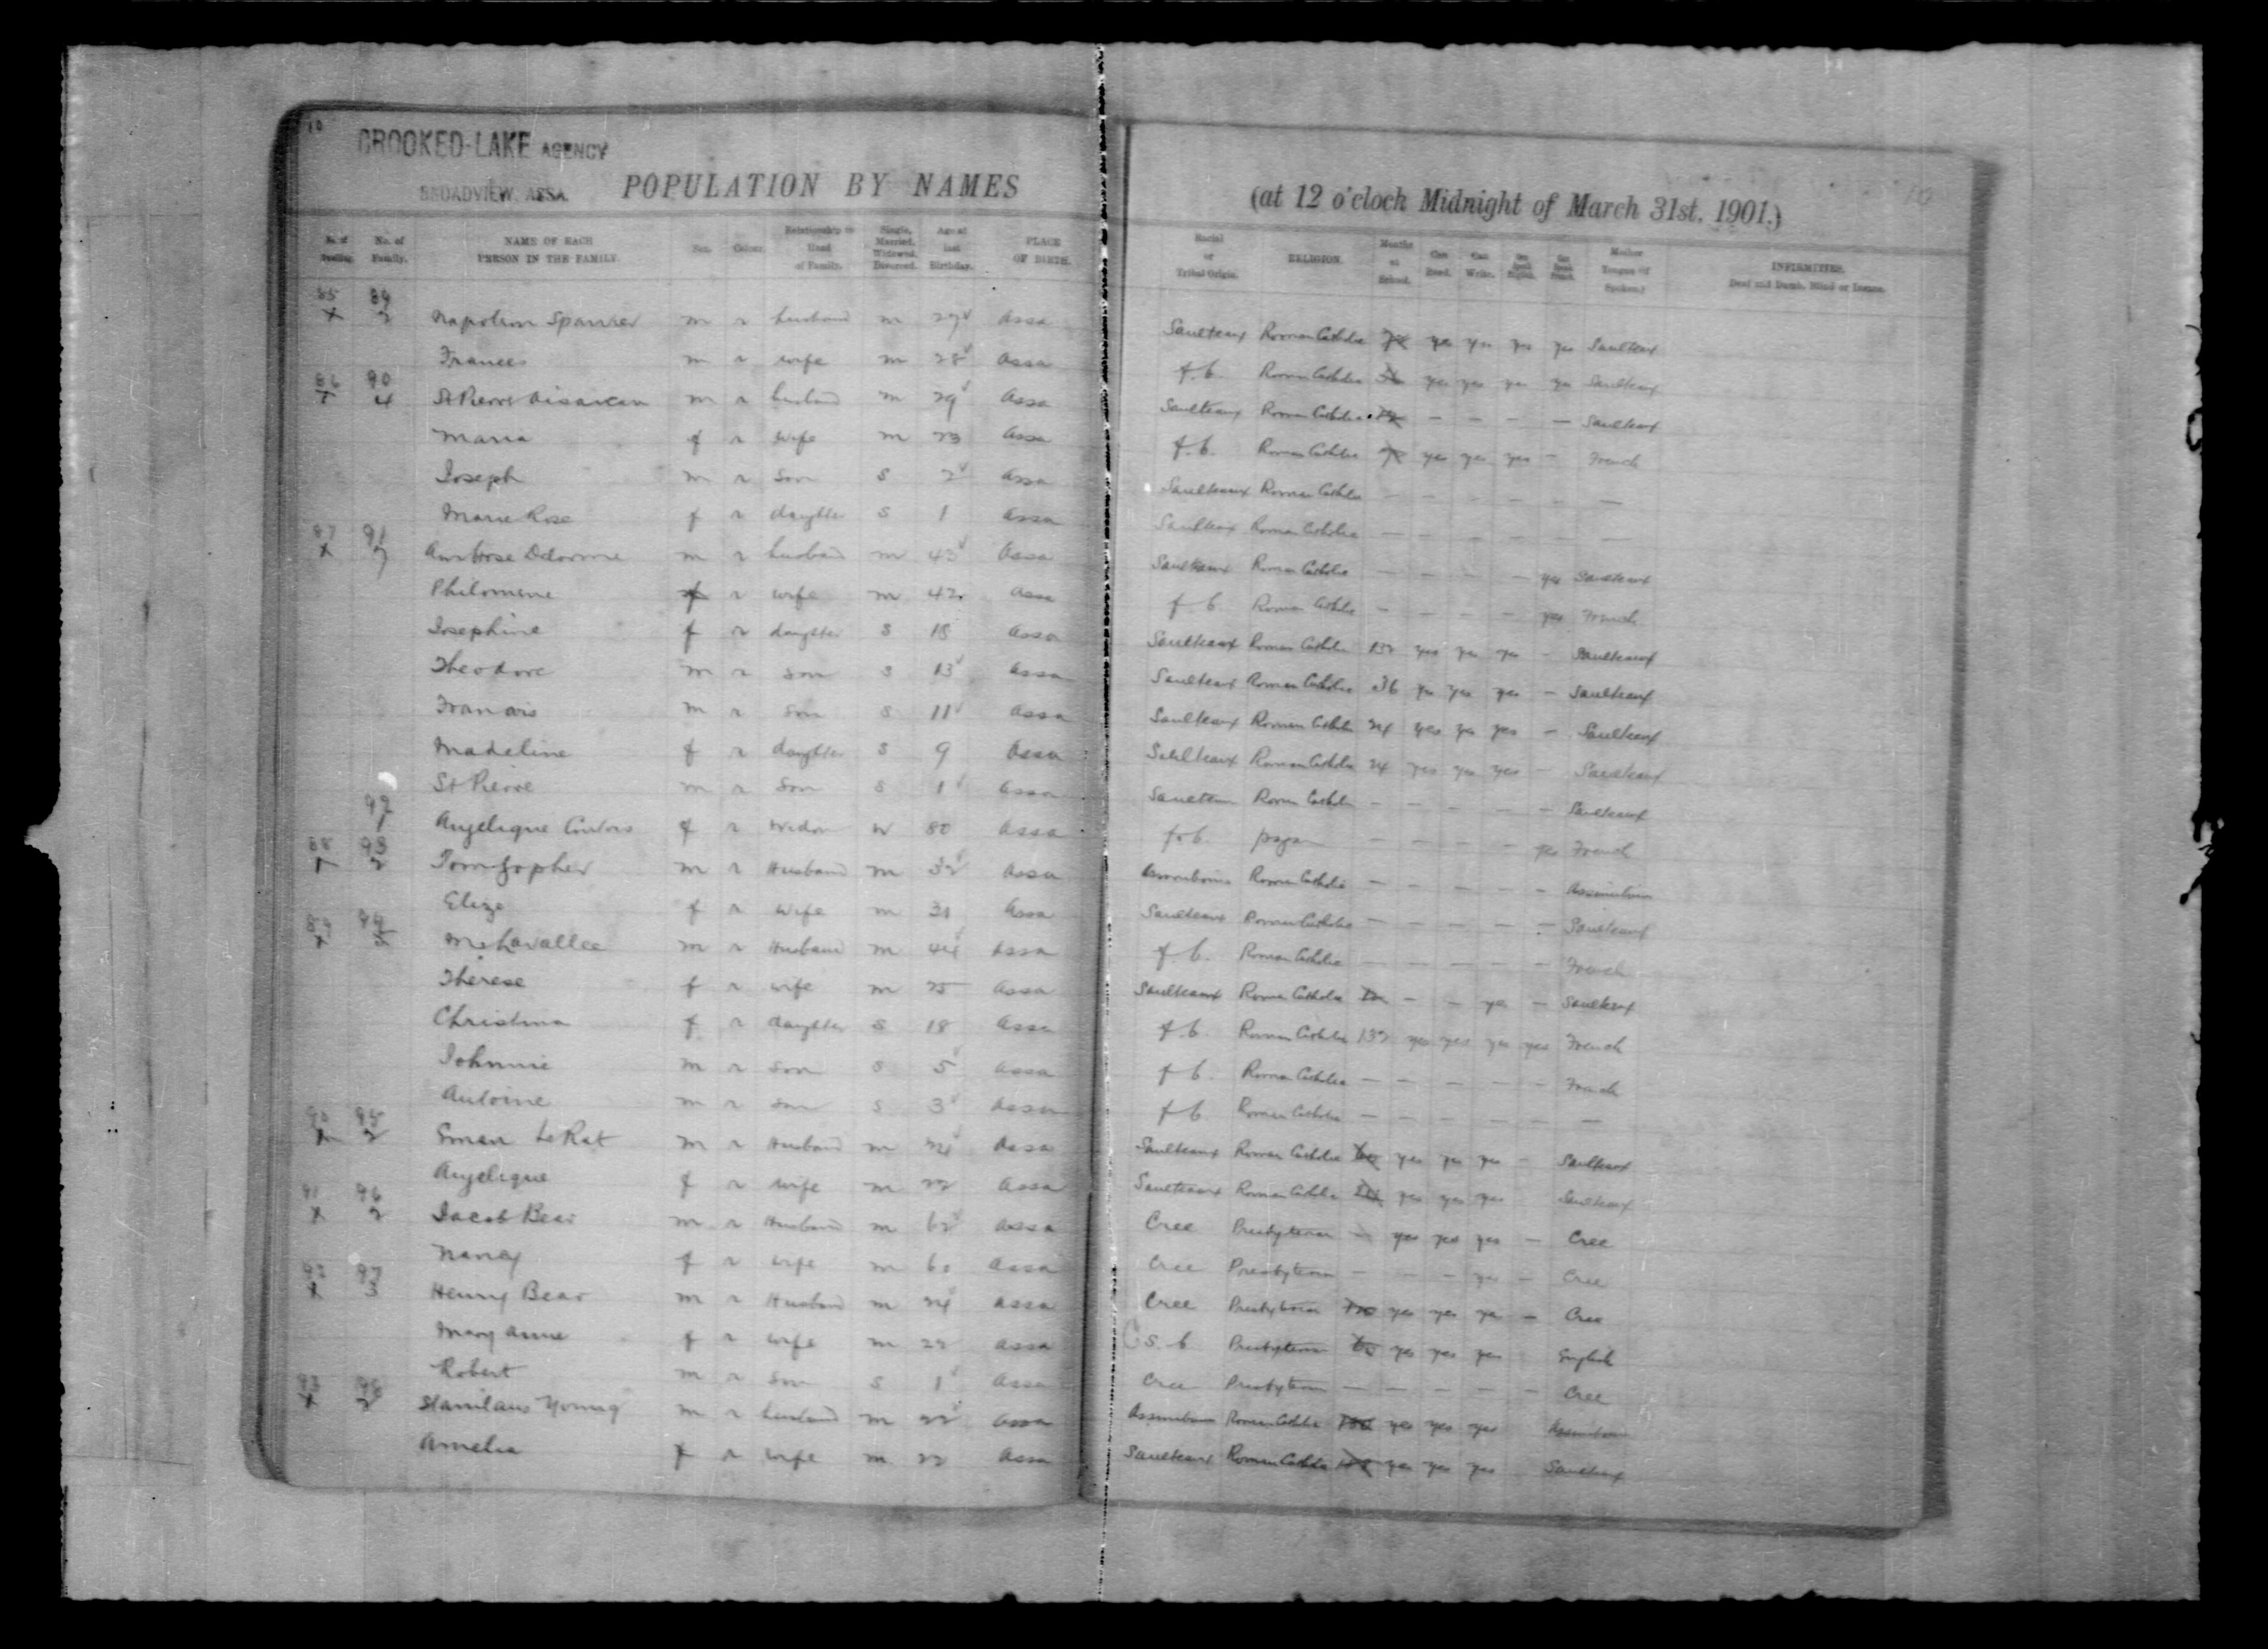 10
CROOKED-LAKE AGENCY
BROADVIEW, ASSA.
POPULATION BY NAMES
(at 12 o'clock Midnight of March 31st, 1901.)
10
No. of Dwelling. No. of Family. NAME OF EACH PERSON IN THE FAMILY. Sex. Colour. Relationship to Head of Family. Single, Married, Widowed, Divorced. Age at last Birthday. PLACE OF BIRTH. Racial or Tribal Origin. RELIGION. Months at School. Can Read. Can Write. Can Speak English. Can Speak French. Mother Tongue (if Spoken.) INFIRMITIES. Deaf and Dumb, Blind or Insane.
85 89
x 2 Napoleon m r husband m Assa Saulteaux Roman Catholic yes yes yes yes Saulteaux
Frances m r wife m 28 Assa f.b. Roman Catholic yes yes yes yes Saulteaux
86 90
x 4 St Pierre m r husband m 29 Assa Saulteaux Roman Catholic - - - - Saulteaux
Maria f r wife m 23 Assa f.b. Roman Catholic yes yes yes - French
Joseph m r son s 2 Assa Saulteaux Roman Catholic - - - - - -
Marie Rose f r daughter s 1 Assa Saulteaux Roman Catholic - - - - - -
87 91
x 7 Ambrose Delorme m r husband m 43 Assa Saulteaux Roman Catholic - - - - yes Saulteaux
Philomene f r wife m 42 Assa f b. Roman Catholic - - - - yes French
Josephine f r daughter s 18 Assa Saulteaux Roman Catholic 132 yes yes yes - Saulteaux
Theodore m r son s 13 Assa Saulteaux Roman Catholic 36 yes yes yes - Saulteaux
Francois m r son s 11 Assa Saulteaux Roman Catholic 24 yes yes yes - Saulteaux
Madeline f r daughter s 9 Assa Saulteaux Roman Catholic 24 yes yes yes - Saulteaux
St Pierre m r son s 1 Assa Saulteaux Roman Catholic - - - - - Saulteaux
92
1 Angelique f r Widow W 80 Assa f.b. pagan - - - - yes French
88 93
x 2 Tom Gopher m r Husband m 32 Assa Assiniboine Roman Catholic - - - - - Assiniboine
Eliza f r Wife m 31 Assa Saulteaux Roman Catholic - - - - - Saulteaux
89 94
x 5 Lavallee m r Husband m 44 Assa f b. Roman Catholic - - - - - French
Therese f r wife m 25 Assa Saulteaux Roman Catholic - - yes - Saulteaux
Christina f r daughter s 18 Assa f.b. Roman Catholic 132 yes yes yes yes French
Johnnie m r son s 5 Assa f b. Roman Catholic - - - - - French
Antoine m r son s 3 Assa f b. Roman Catholic - - - - - -
90 95
x 2 LeRat m r Husband m 24 Assa Saulteaux Roman Catholic yes yes yes - Saulteaux
Angelique f r wife m 22 Assa Saulteaux Roman Catholic yes yes yes Saulteaux
91 96
x 2 Jacob Bear m r Husband m 62 Assa Cree Presbyterian - yes yes yes - Cree
Nancy f r wife m 60 Assa Cree Presbyterian - - - yes - Cree
92 97
x 3 Henry Bear m r Husband m 24 Assa Cree Presbyterian yes yes yes - Cree
Mary Anne f r wife m 22 Assa C s. b Presbyterian yes yes yes English
Robert m r son s 1 Assa Cree Presbyterian - - - - - Cree
93 98
x 2 Stanilaus Young m r husband m 22 Assa Assiniboine Roman Catholic yes yes yes Assiniboine
Amelia f r wife m 22 Assa Saulteaux Roman Catholic yes yes yes Saulteaux